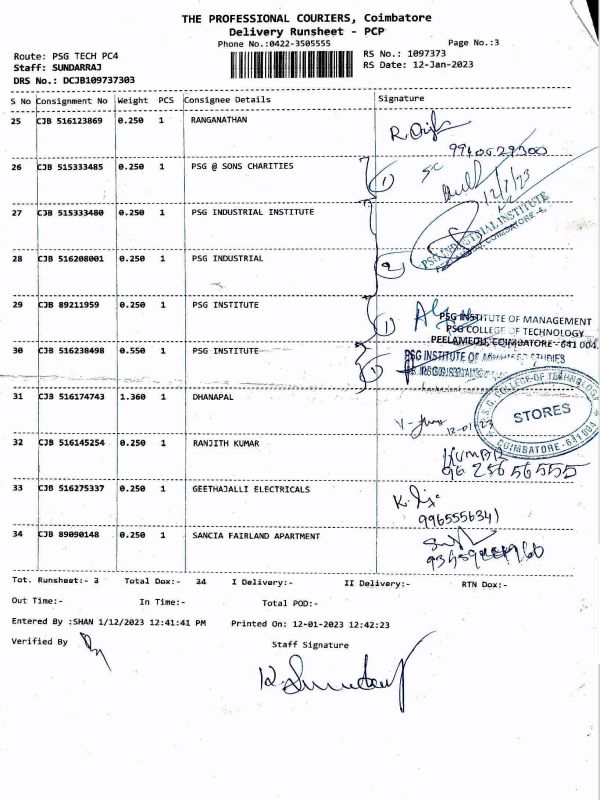 THE PROFESSIONAL COURIERS, Coimbatore
Delivery Runsheet - PCP
Phone No.:0422-3505555 Page No.:3
Route: PSG TECH PC4 RS No.: 1097373
Staff: SUNDARRAJ RS Date: 12-Jan-2023
DRS No.: DCJB109737303
S No Consignment No Weight PCS Consignee Details Signature
25 CJB 516123869 0.250 1 RANGANATHAN
26 CJB 515333485 0.250 1 PSG @ SONS CHARITIES
1
12/1/23
27 CJB 515333480 0.250 1 PSG INDUSTRIAL INSTITUTE
PSG INDUSTRIAL INSTITUTE
PEELAMEDU, COIMBATORE-4.
28 CJB 516208001 0.250 1 PSG INDUSTRIAL
2
29 CJB 89211959 0.250 1 PSG INSTITUTE
1
PSG INSTITUTE OF MANAGEMENT
PSG COLLEGE OF TECHNOLOGY
PEELAMEDU, COIMBATORE - 641 004.
30 CJB 516238498 0.550 1 PSG INSTITUTE
1
PSG INSTITUTE OF ADVANCED STUDIES
31 CJB 516174743 1.360 1 DHANAPAL
COLLEGE OF TECHNOLOGY
STORES
COIMBATORE - 641 004
32 CJB 516145254 0.250 1 RANJITH KUMAR
33 CJB 516275337 0.250 1 GEETHAJALLI ELECTRICALS
9965556341
34 CJB 89090148 0.250 1 SANCIA FAIRLAND APARTMENT
Tot. Runsheet:- 3 Total Dox:- 34 I Delivery:- II Delivery:- RTN Dox:-
Out Time:- In Time:- Total POD:-
Entered By :SHAN 1/12/2023 12:41:41 PM Printed On: 12-01-2023 12:42:23
Verified By Staff Signature